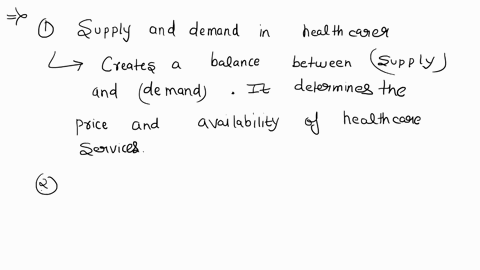 => ① Supply and demand in healthcarer
↳ Creates a balance between (supply)
and (demand). It determines the
price and availability of healthcare
services.
②